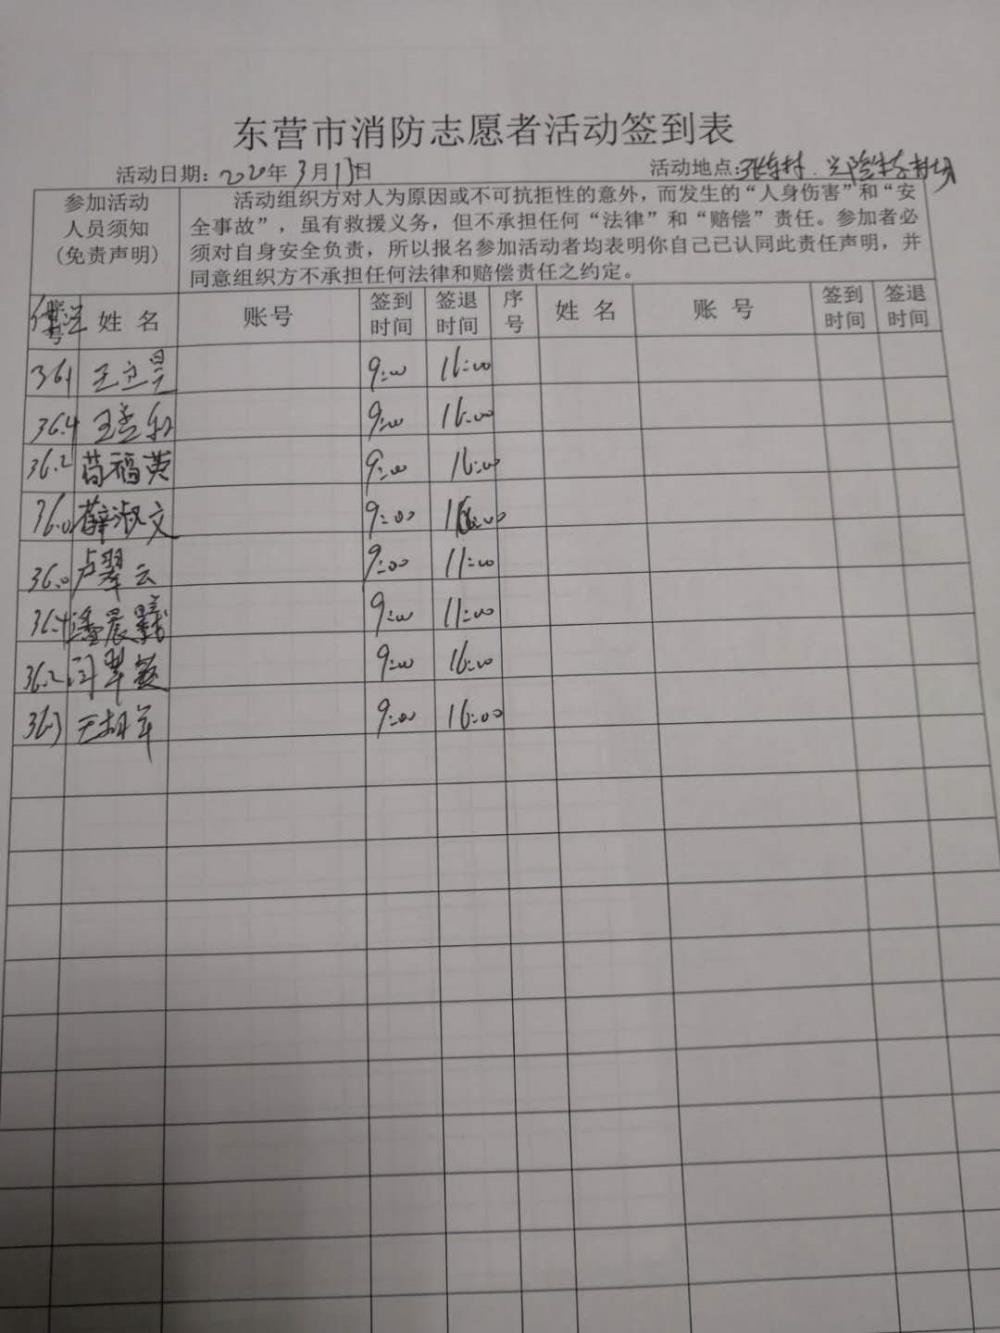 东营市消防志愿者活动签到表
活动日期：2020年3月13日 活动地点：张东村
参加活动人员须知（免责声明）
活动组织方对人为原因或不可抗拒性的意外，而发生的“人身伤害”和“安
全事故”，虽有救援义务，但不承担任何“法律”和“赔偿”责任。参加者必
须对自身安全负责，所以报名参加活动者均表明你自己已认同此责任声明，并
同意组织方不承担任何法律和赔偿责任之约定。
体温 姓名 账号 签到时间 签退时间 序号 姓名 账号 签到时间 签退时间
36.1 王立昊 9:00 16:00
36.4 王孟 9:00 16:00
36.2 苟福英 9:00 16:00
36.0 薛淑文 9:00 16:00
36.0 卢翠云 9:00 11:00
36.4 潘晨 9:00 11:00
36.2 闫翠 9:00 16:00
36.3 9:00 16:00